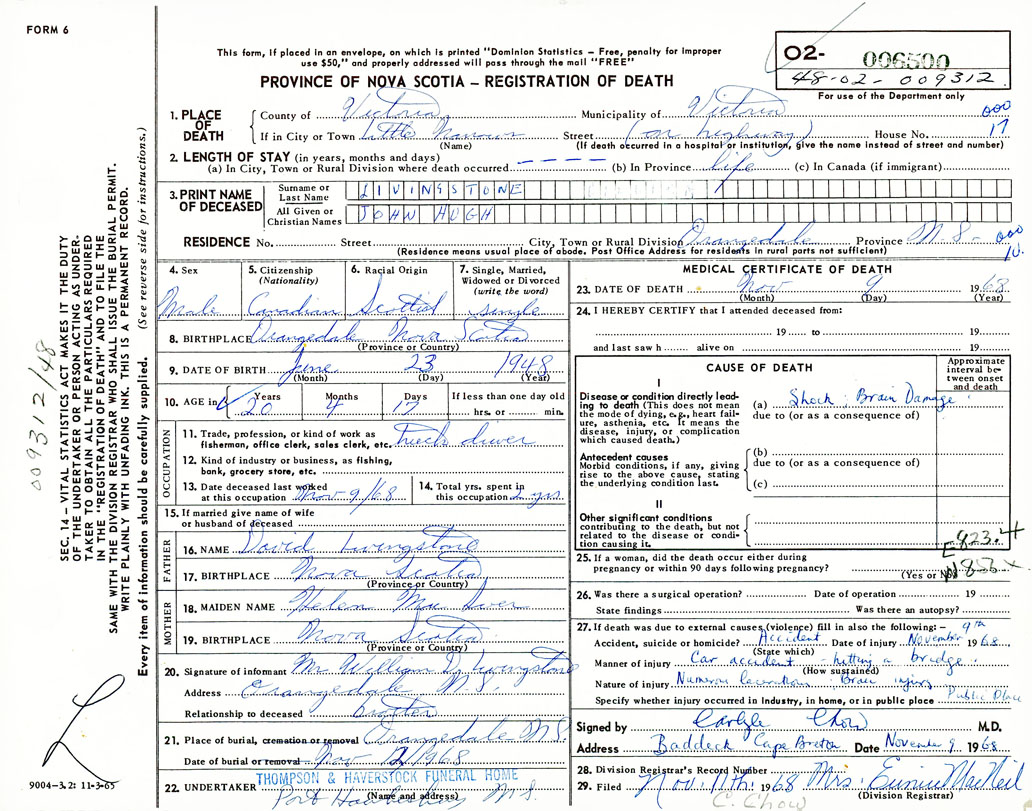 FORM 6
This form, if placed in an envelope, on which is printed "Dominion Statistics – Free, penalty for improper
use $50," and properly addressed will pass through the mail "FREE"
PROVINCE OF NOVA SCOTIA – REGISTRATION OF DEATH
02- 006500
48-02-009312
For use of the Department only
1. PLACE OF DEATH
County of Victoria Municipality of Victoria 000
If in City or Town Little Narrows Street (on highway) House No. 17
(Name) (If death occurred in a hospital or institution, give the name instead of street and number)
2. LENGTH OF STAY (in years, months and days)
(a) In City, Town or Rural Division where death occurred – – – – (b) In Province life (c) In Canada (if immigrant)
3. PRINT NAME OF DECEASED
Surname or Last Name LIVINGSTONE
All Given or Christian Names JOHN HUGH
RESIDENCE No. Street City, Town or Rural Division Orangedale Province N.S. 000
(Residence means usual place of abode. Post Office Address for residents in rural parts not sufficient) 10.
4. Sex Male
5. Citizenship (Nationality) Canadian
6. Racial Origin Scottish
7. Single, Married, Widowed or Divorced (write the word) single
8. BIRTHPLACE Orangedale Nova Scotia
(Province or Country)
9. DATE OF BIRTH June 23 1948
(Month) (Day) (Year)
10. AGE in Years 20 Months 4 Days 17 If less than one day old hrs. or min.
OCCUPATION
11. Trade, profession, or kind of work as
fisherman, office clerk, sales clerk, etc. truck driver
12. Kind of industry or business, as fishing,
bank, grocery store, etc.
13. Date deceased last worked
at this occupation Nov 9/68
14. Total yrs. spent in
this occupation 2 yrs
15. If married give name of wife
or husband of deceased
FATHER
16. NAME David Livingstone
17. BIRTHPLACE Nova Scotia
(Province or Country)
MOTHER
18. MAIDEN NAME Helen Mac Iver
19. BIRTHPLACE Nova Scotia
(Province or Country)
20. Signature of informant Mr. William D. Livingstone
Address Orangedale N.S.
Relationship to deceased brother
21. Place of burial, cremation or removal Orangedale N.S.
Date of burial or removal Nov 12/1968
THOMPSON & HAVERSTOCK FUNERAL HOME
22. UNDERTAKER Port Hawkesbury N.S.
(Name and address)
MEDICAL CERTIFICATE OF DEATH
23. DATE OF DEATH Nov 9 1968
(Month) (Day) (Year)
24. I HEREBY CERTIFY that I attended deceased from:
19 to 19
and last saw h alive on 19
CAUSE OF DEATH
Approximate interval between onset and death
I
Disease or condition directly leading to death (This does not mean the mode of dying, e.g., heart failure, asthenia, etc. It means the disease, injury, or complication which caused death.)
(a) Shock: Brain Damage
due to (or as a consequence of)
Antecedent causes
Morbid conditions, if any, giving rise to the above cause, stating the underlying condition last.
(b)
due to (or as a consequence of)
(c)
II
Other significant conditions
contributing to the death, but not related to the disease or condition causing it.
E823.4
25. If a woman, did the death occur either during
pregnancy or within 90 days following pregnancy?
(Yes or No)
26. Was there a surgical operation? Date of operation 19
State findings Was there an autopsy?
27. If death was due to external causes (violence) fill in also the following: – 9th
Accident, suicide or homicide? Accident Date of injury November 1968
(State which)
Manner of injury Car accident - hitting a bridge.
(How sustained)
Nature of injury Numerous lacerations Brain injury
Specify whether injury occurred in Industry, in home, or in public place Public Place
Signed by Carlyle Chow M.D.
Address Baddeck Cape Breton Date November 9 1968
28. Division Registrar's Record Number
29. Filed Nov. 11th. 1968 Mrs. Eunice MacNeil
(Division Registrar)
C. Chow
SEC. 14 – VITAL STATISTICS ACT MAKES IT THE DUTY
OF THE UNDERTAKER OR PERSON ACTING AS UNDER-
TAKER TO OBTAIN ALL THE PARTICULARS REQUIRED
IN THE "REGISTRATION OF DEATH" AND TO FILE THE
SAME WITH THE DIVISION REGISTRAR WHO SHALL ISSUE THE BURIAL PERMIT.
WRITE PLAINLY WITH UNFADING INK. THIS IS A PERMANENT RECORD.
Every item of information should be carefully supplied. (See reverse side for instructions.)
009312/48
9004-3.2: 11-3-65